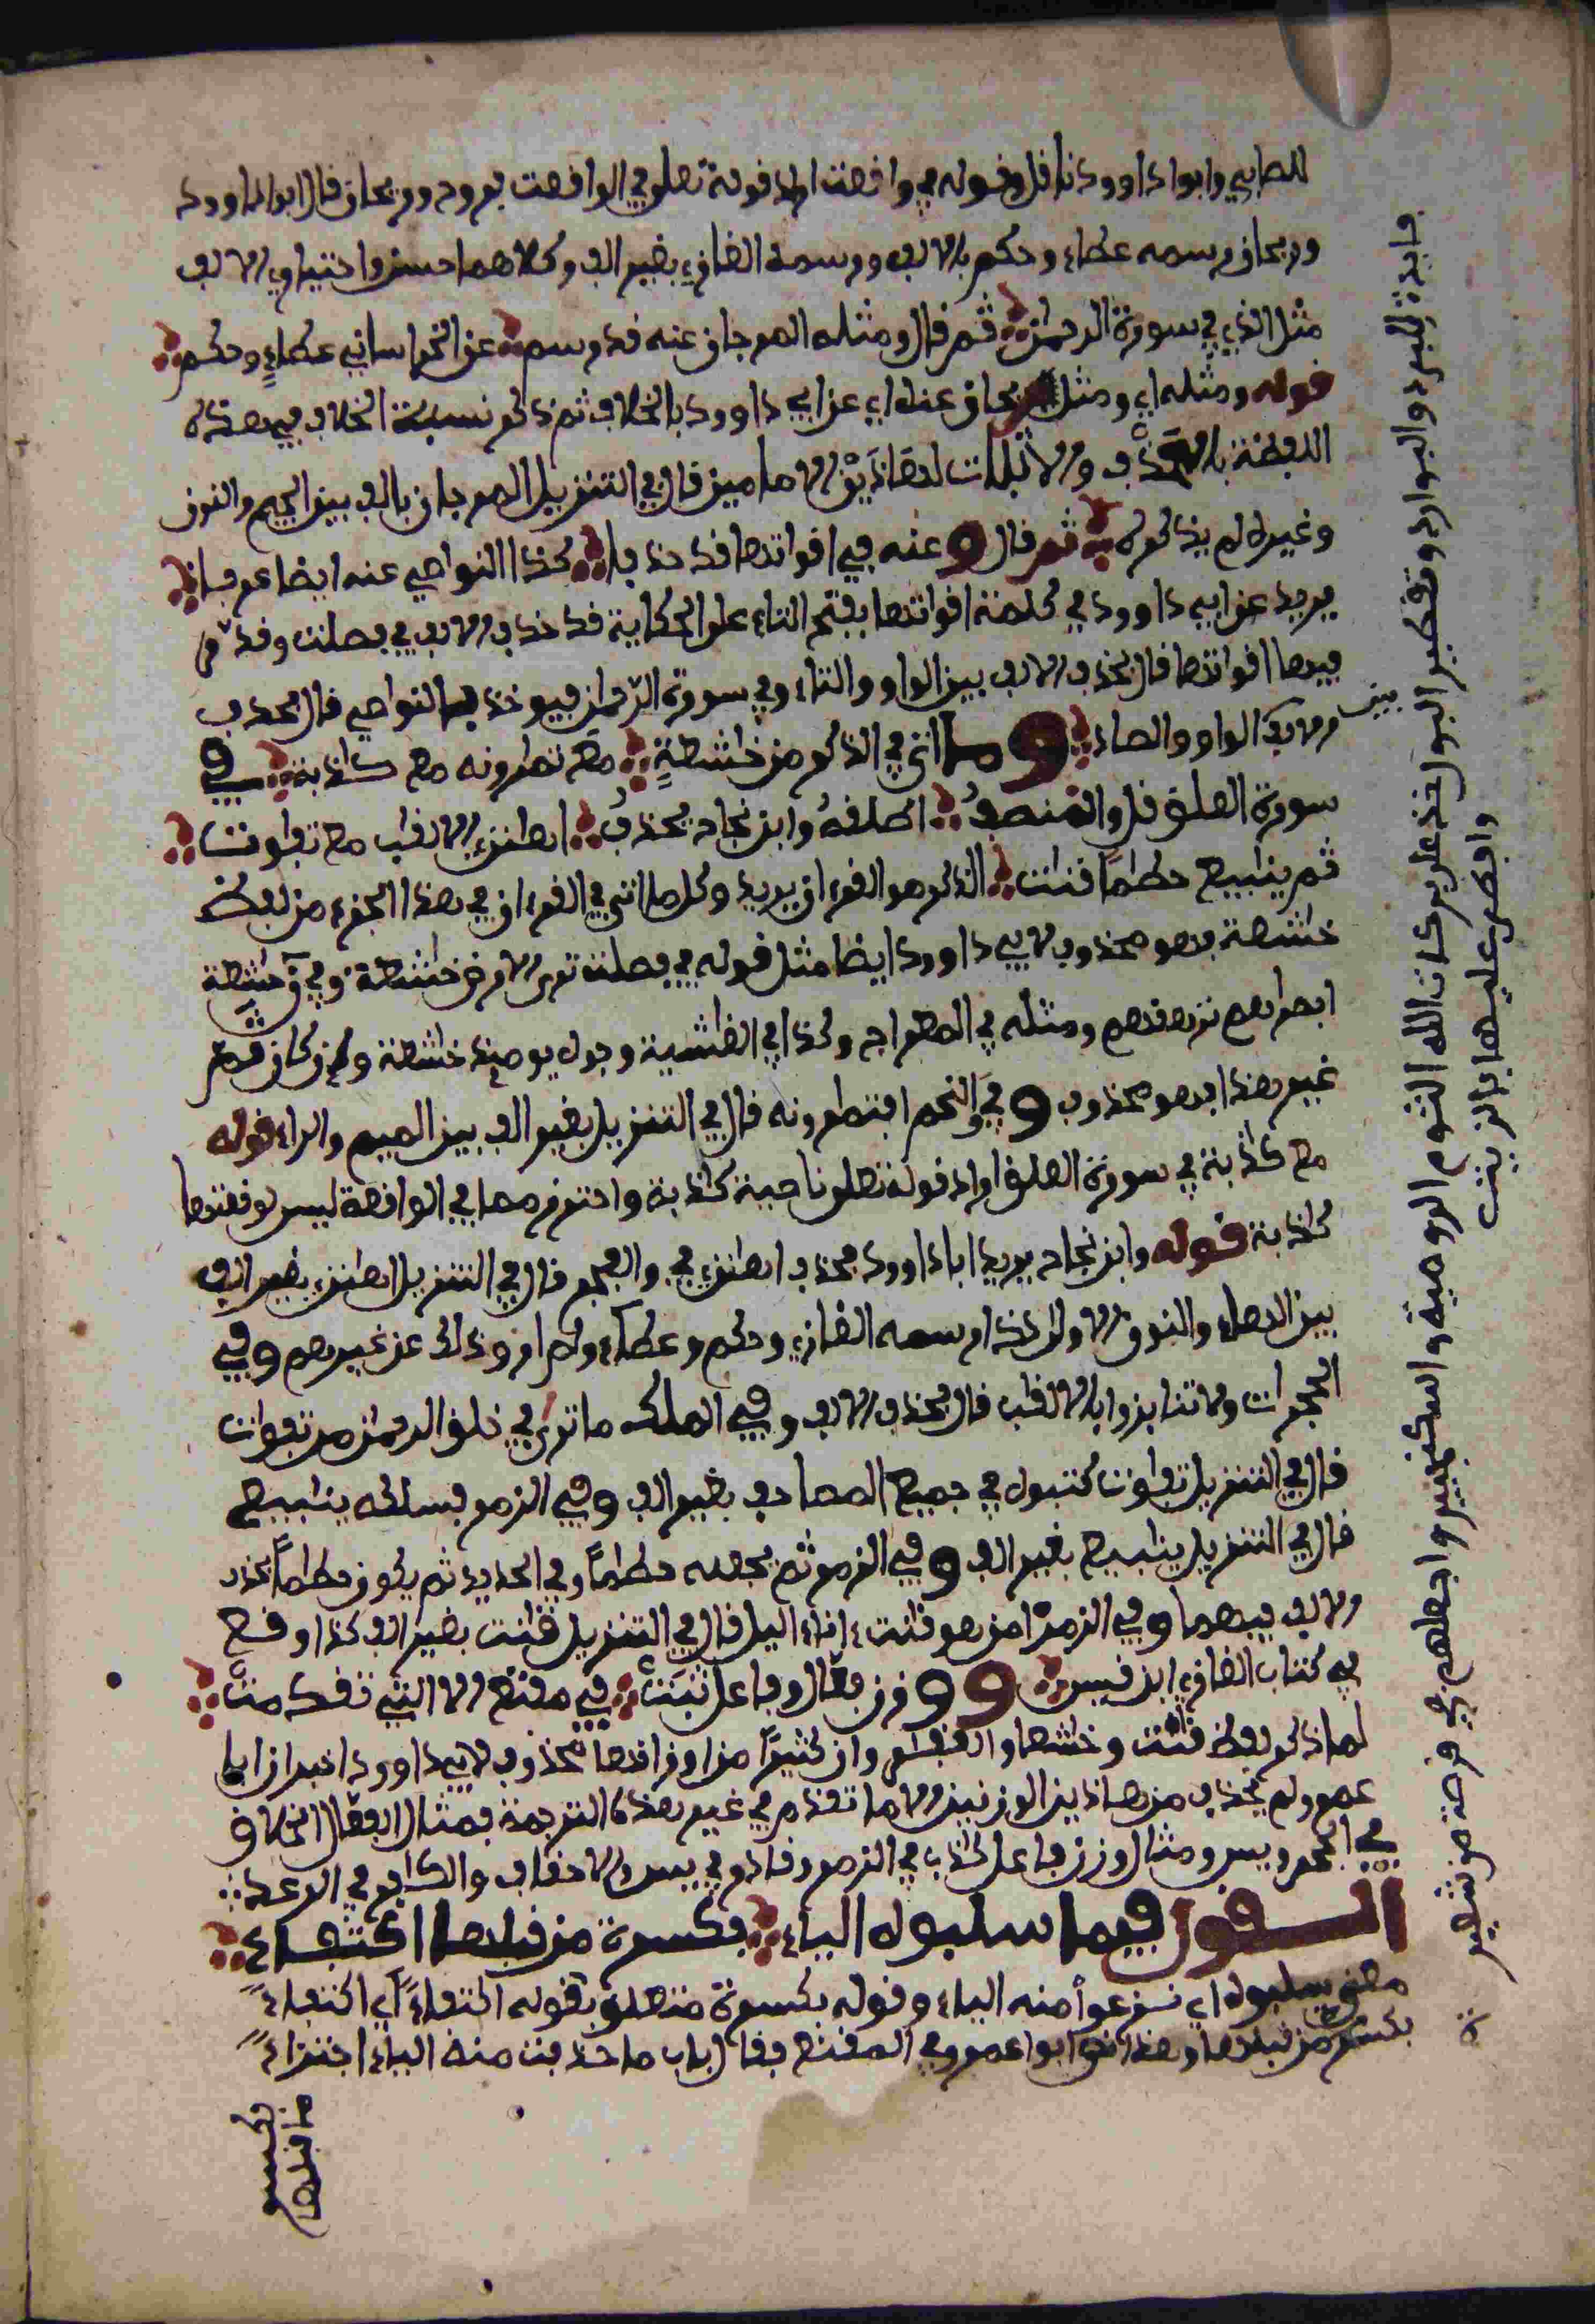 للصابي وابوا داوود ناقل وقوله في واقعت اراد قوله تعلى في الواقعت فروح وريحان قال ابوا داوود
وريحان رسمه عطاء وحكم بالالف ورسمه الغازي بغير الف وكلاهما حسن واختياري الالف
مثل الذي في سورة الرحمن ثم قال ومثله المرجان عنه قد رسم عن الخراساني عطاء وحكم
قوله ومثله اي ومثل ريحان عنه اي عن ابي داوود بالخلاف ثم ذكر نسبة الخلاف في هذه
اللفظة بالحذف والاثبات لهاذين الامامين قال في التنزيل المرجان بالف بين الجيم والنون
وغيره لم يذكره ثم قال وعنه في اقواتها قد حذفا كذا النواصي عنه ايضا عرفا
يريد عن ابي داوود في كلمة اقواتها بفتح التاء على الحكاية قد حذف الالف في فصلت وقدر
فيها اقواتها قال بحذف الالف بين الواو والتاء وفي سورة الرحمن فيوخذ بالنواصي قال بحذف
الالف بين الواو والصاد وما اتى في الذكر من خشعة مع تمارونه مع كاذبة في
سورة العلق قل والمنصف اطلقه وابن نجاح يحذف اطمئن الالقب مع تفوت
ثم ينبيع حطما قنت الذكر هو القرءان يريد وكل ما اتى في القرءان في هذا الجزء من لفظ
خشعة فهو محذوف لابي داوود ايضا مثل قوله في فصلت ترى الارض خشعة وفي ن خشعة
ابصارهم ترهقهم ومثله في المعراج وكذا في الغشية وجوه يومئذ خشعة وان كان قدم
غير هذا فهو محذوف وفي والنجم افتمرونه قال في التنزيل بغير الف بين الميم والراء قوله
مع كاذبة في سورة العلق اراد قوله تعلى ناصية كذبة واحترز مما في الواقعة ليس لوقعتها
كاذبة قوله وابن نجاح يريد ابا داوود بحذف اطمئن في والفجر قال في التنزيل اطمئن بغير الف
بين الهاء والنون الاولى كذا رسمه الغازي وحكم وعطاء ولم ارو ذالك عن غيرهم وفي
الحجرات ولا تنابزوا بالالقب قال بحذف الالف وفي الملك ما ترى في خلق الرحمن من تفوت
قال في التنزيل تفوت كتبوه في جميع المصاحف بغير الف وفي الزمر فسلكه ينبيع
قال في التنزيل ينبيع بغير الف وفي الزمر ثم يجعله حطما وفي الحديد ثم يكون حطما بحذف
الالف فيهما وفي الزمر امن هو قنت ءاناء اليل قال في التنزيل قنت بغير الف كذا وقع
في كتاب الغازي ابن قيس ووزن فعال وفاعل ثبت في مقنع الا التي تقدمت
لما ذكر لفظ قنت وخشعا والغفر وان كثيرا من اوزانها محذوف لابي داوود اخبر ان ابا
عمرو لم يحذف من هاذين الوزنين الا ما تقدم في غير هذه الترجمة فمثال افعال الخلق
في الحجر ويس ومثال وزن فاعل كذب في الزمر وقادر في يس والاحقاف والكافر في الرعد
القول فيما سلبوه الياء بكسرة من قبلها اكتفاء
معنى سلبوه اي نزعوا منه الياء وقوله بكسرة متعلق بقوله اكتفاء اي اكتفاء
بكسرة من قبلها وهذا نحو ابوا عمرو في المقنع فقال باب ما حذفت منه الياء اجتزاء
بكسر
ما قبلها
فايدة للبرد والبوارد وتقطير البول خذ على بركات الله الثوم الرومية والسكنجبير واجعلهم في قرصة من شعير
وافطر عليها بالزيت